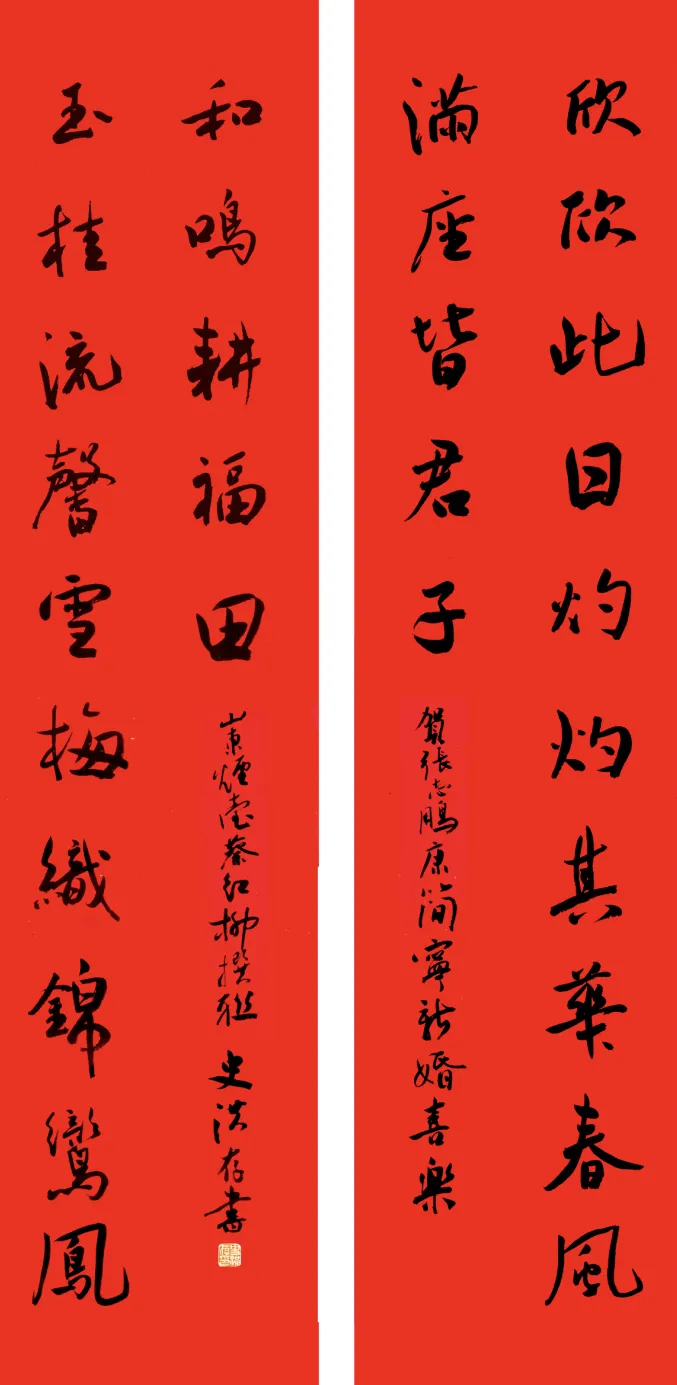 欣欣此日灼灼其華春風
滿座皆君子
賀張志鵬康简寧新婚喜樂
玉桂流馨雪梅織錦鸞鳳
和鳴耕福田
山東煙臺蔡紅柳撰联 史洪存書